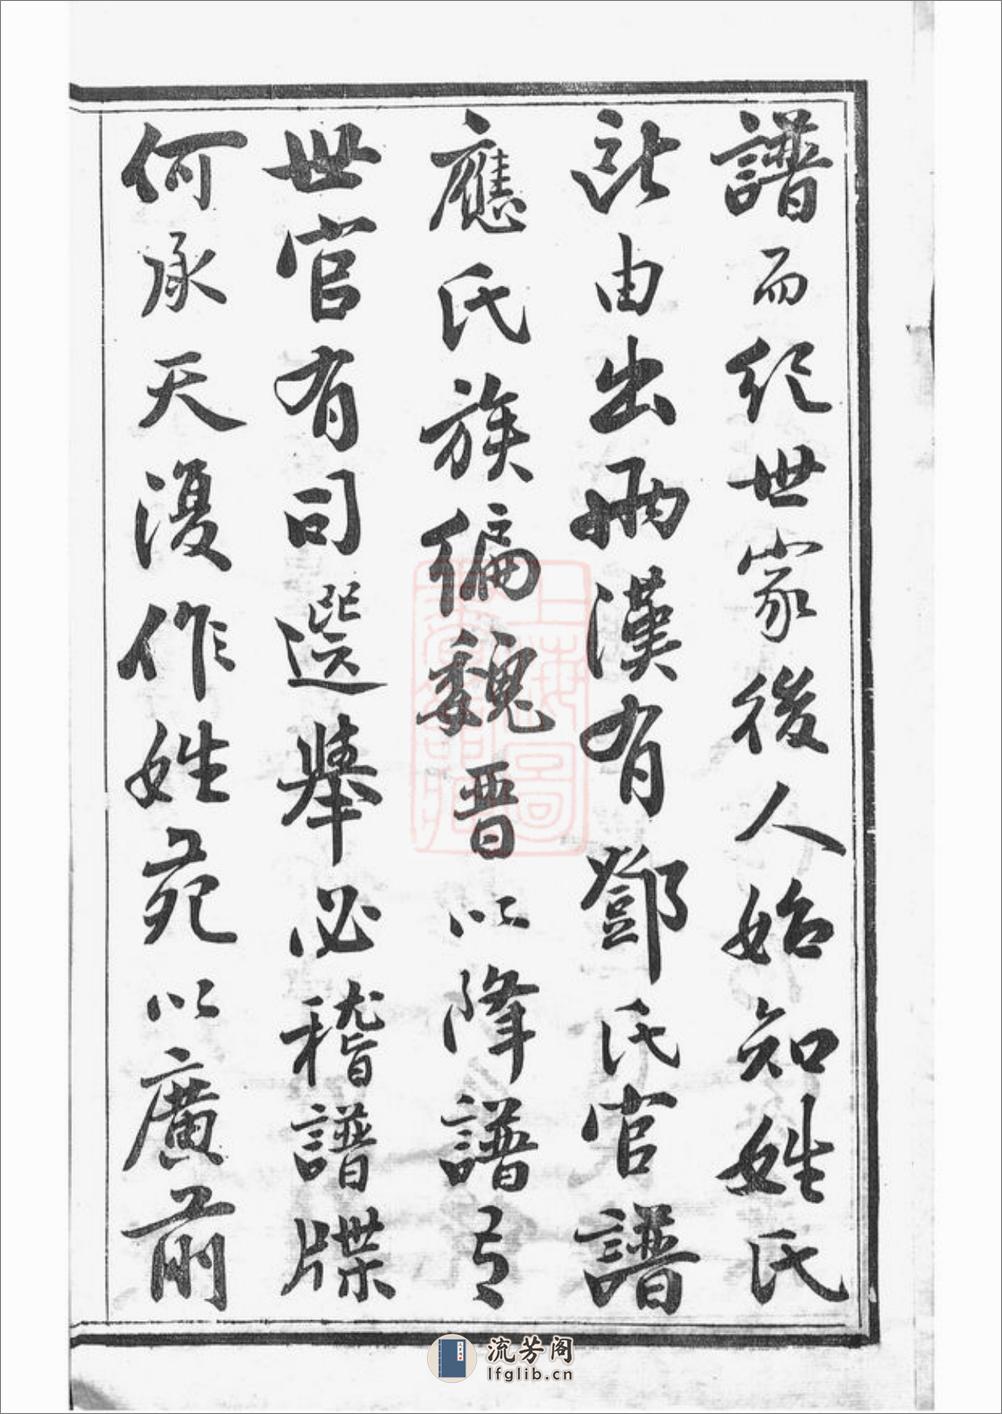 譜而紀世家後人始知姓氏
所由出兩漢有鄧氏官譜
應氏族偏魏晋以降譜有
世官有司選舉必稽譜牒
何承天復作姓苑以廣前
上海圖書館藏
流芳阁
lfglib.cn